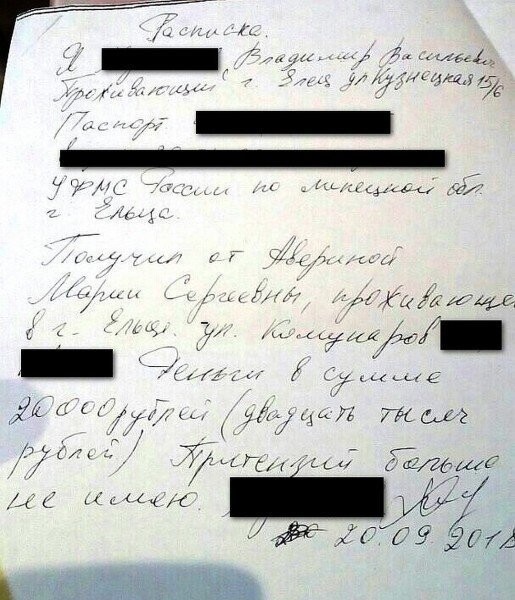 Расписка.
Я Владимир Васильевич
Проживающий г. Елец ул Кузнецкая 15/6
Паспорт
УФМС России по Липецкой обл.
г. Ельца.
Получил от Авериной
Марии Сергеевны, проживающе
в г. Ельце. ул. Комунаров
Деньги в сумме
20000 рублей (двадцать тысяч
рублей) Притензий больше
не имею.
20.09.2018